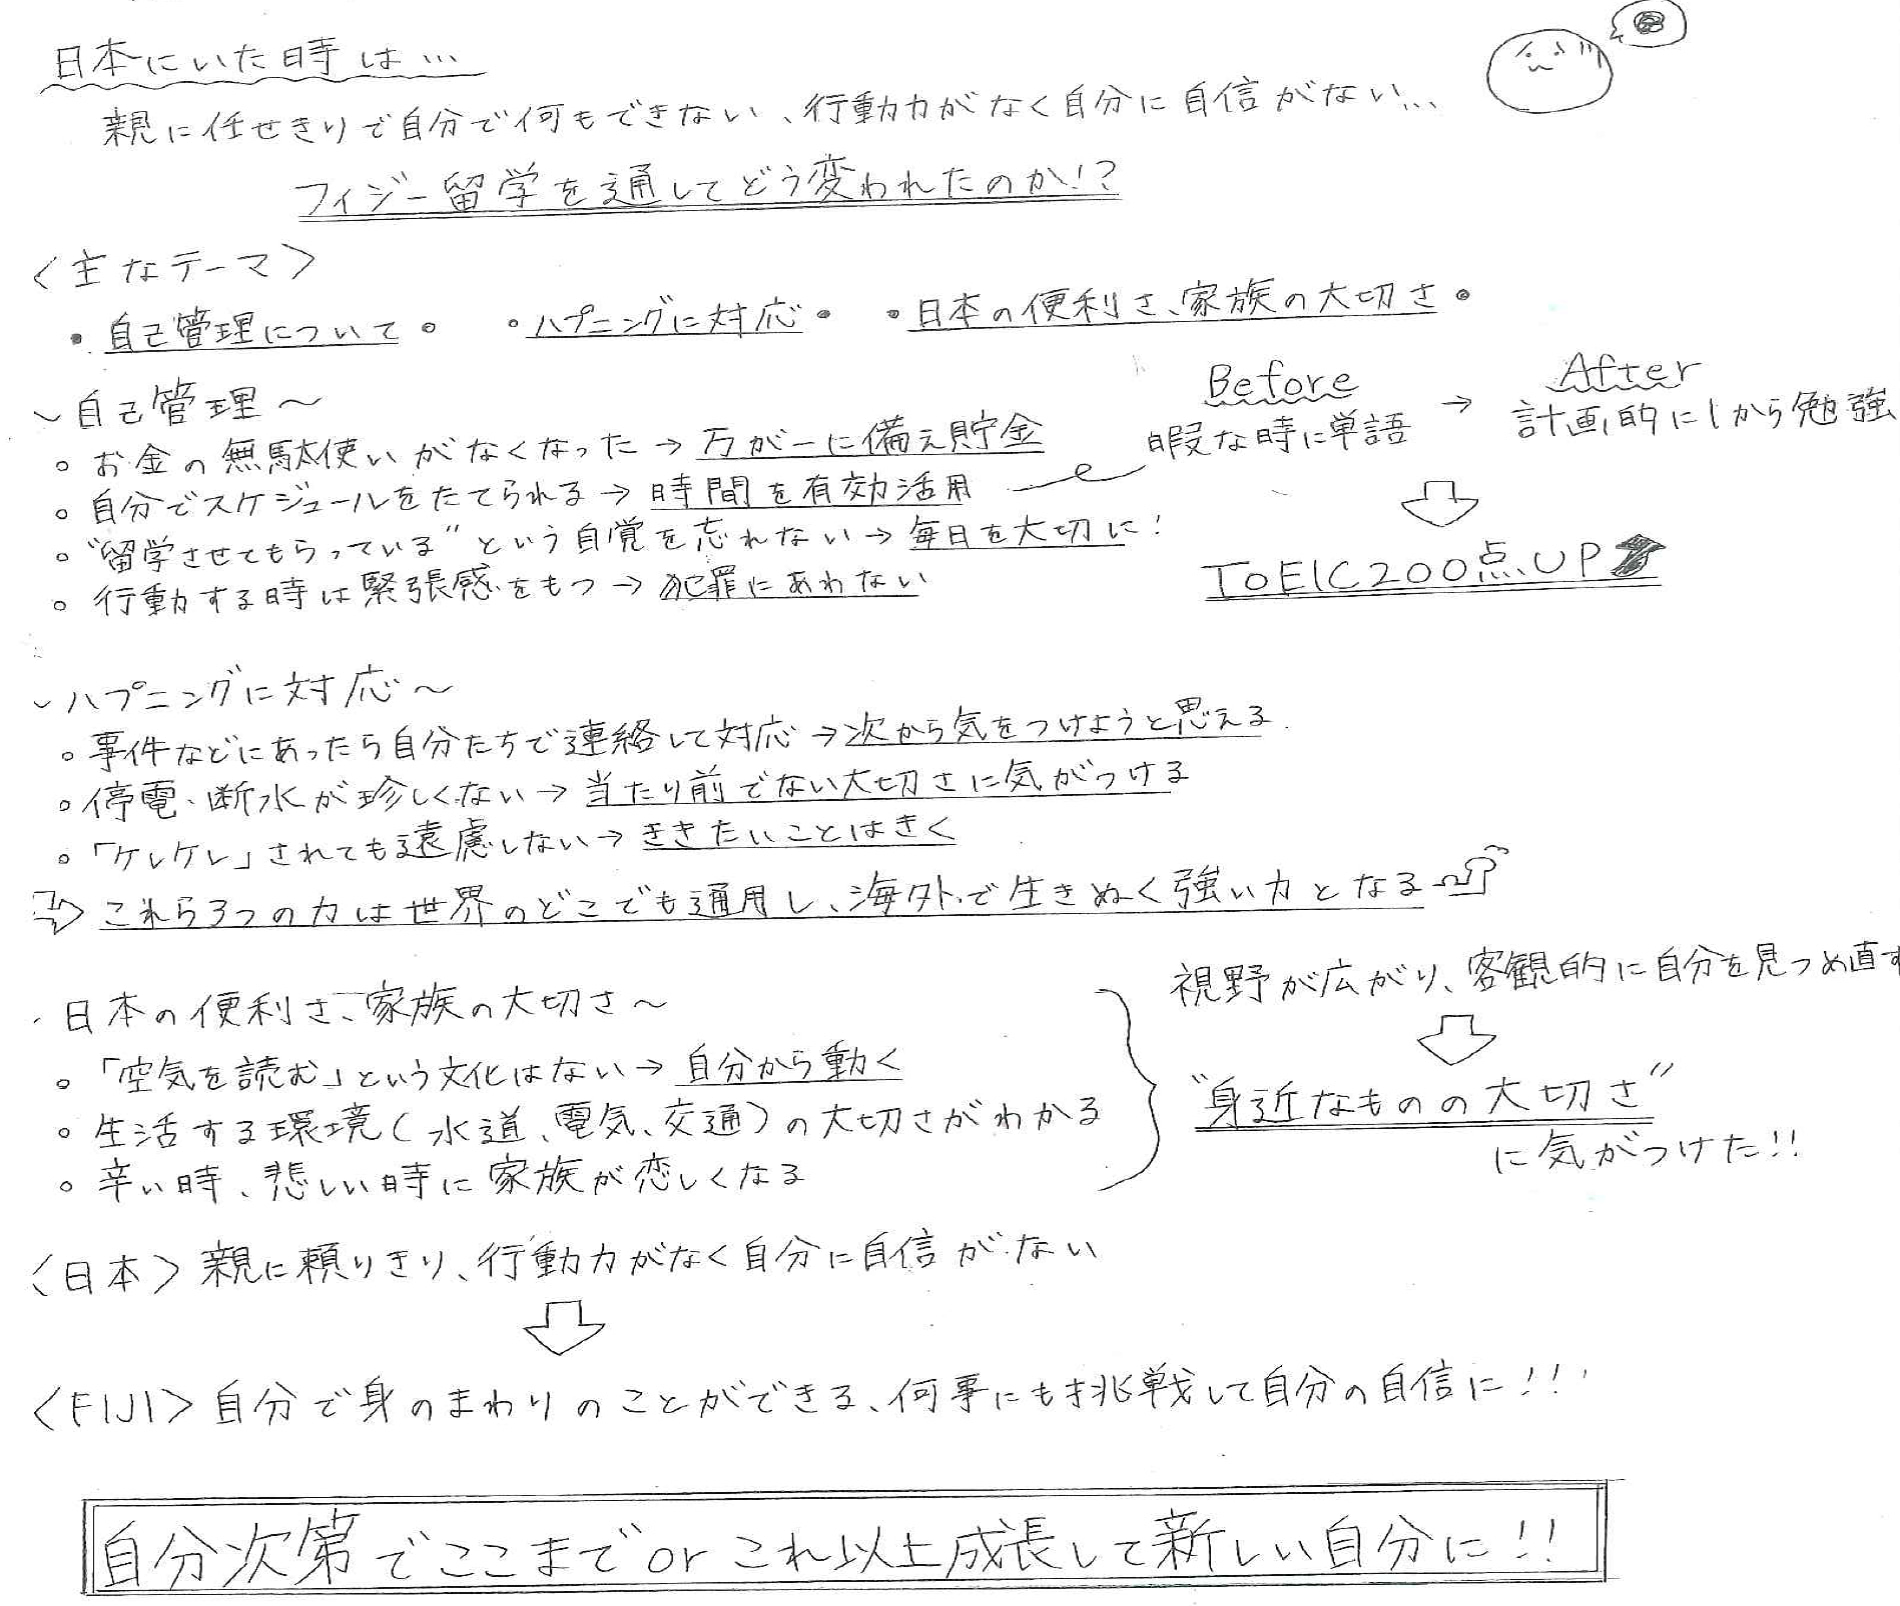 日本にいた時は…
親に任せきりで自分で何もできない、行動力がなく自分に自信がない…
フィジー留学を通してどう変われたのか!?
〈主なテーマ〉
・自己管理について。 ・ハプニングに対応・ ・日本の便利さ、家族の大切さ・
～自己管理～
。お金の無駄使いがなくなった→万が一に備え貯金
。自分でスケジュールをたてられる→時間を有効活用
。"留学させてもらっている"という自覚を忘れない→毎日を大切に!
。行動する時は緊張感をもつ→犯罪にあわない
Before → After
暇な時に単語 計画的に1から勉強
TOEIC200点UP
～ハプニングに対応～
。事件などにあったら自分たちで連絡して対応→次から気をつけようと思える.
。停電・断水が珍しくない→当たり前でない大切さに気がつける
。「ケレケレ」されても遠慮しない→ききたいことはきく
⇨これら3つの力は世界のどこでも通用し、海外で生きぬく強い力となる
・日本の便利さ、家族の大切さ～
。「空気を読む」という文化はない→自分から動く
。生活する環境(水道、電気、交通)の大切さがわかる
。辛い時、悲しい時に家族が恋しくなる
視野が広がり、客観的に自分を見つめ直す
"身近なものの大切さ"
に気がつけた!!
〈日本〉親に頼りきり、行動力がなく自分に自信がない
〈FIJI〉自分で身のまわりのことができる、何事にも挑戦して自分の自信に!!
自分次第でここまでorこれ以上成長して新しい自分に!!